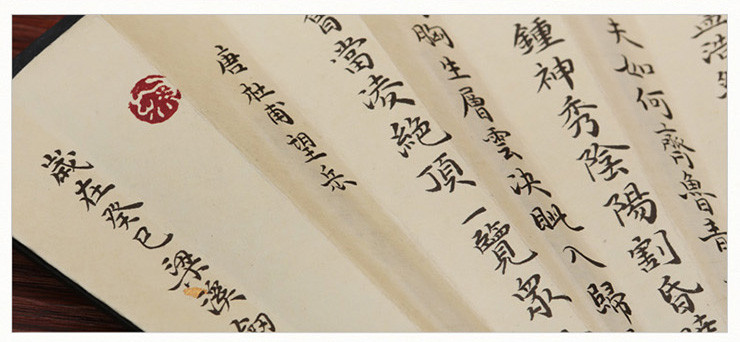 孟浩
夫如何齊魯青
鍾神秀陰陽割昏
胸生層雲决眦入歸
會當凌絕頂一覽衆
唐杜甫望岳
歲在癸巳梁溪